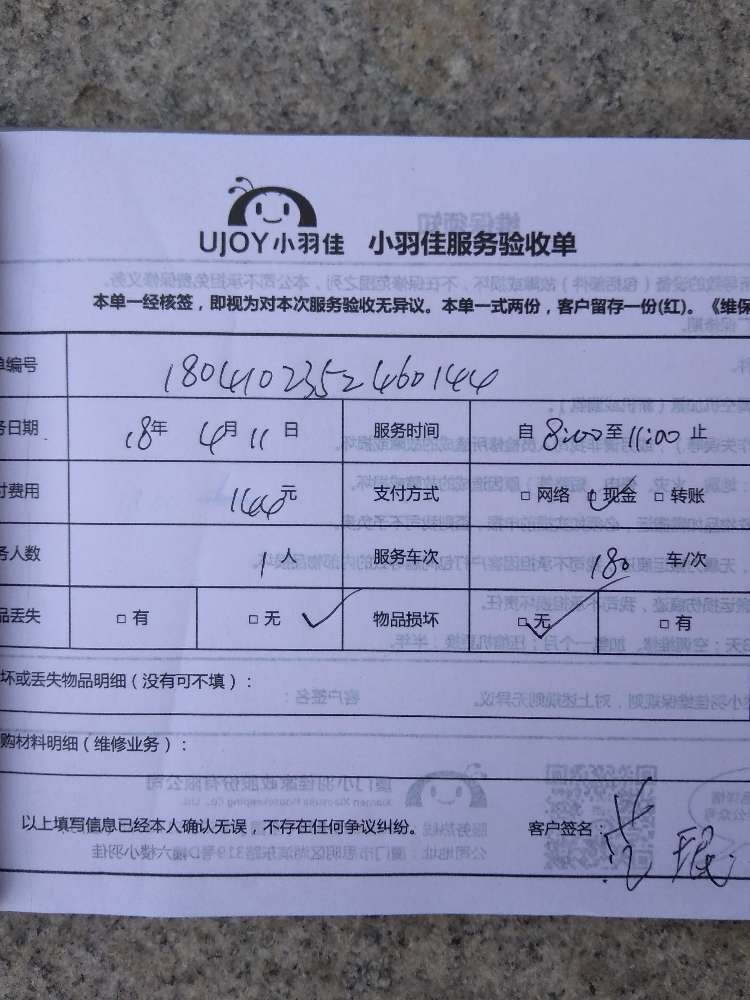 UJOY小羽佳 小羽佳服务验收单
本单一经核签，即视为对本次服务验收无异议。本单一式两份，客户留存一份(红)。《维保
单编号 1804102352460144
务日期 18年 4月 11日 服务时间 自 8:00 至 11:00 止
付费用 144元 支付方式 □网络 □现金 □转账
务人数 1人 服务车次 180 车/次
品丢失 □有 □无 物品损坏 □无 □有
坏或丢失物品明细（没有可不填）：
购材料明细（维修业务）：
以上填写信息已经本人确认无误，不存在任何争议纠纷。 客户签名：